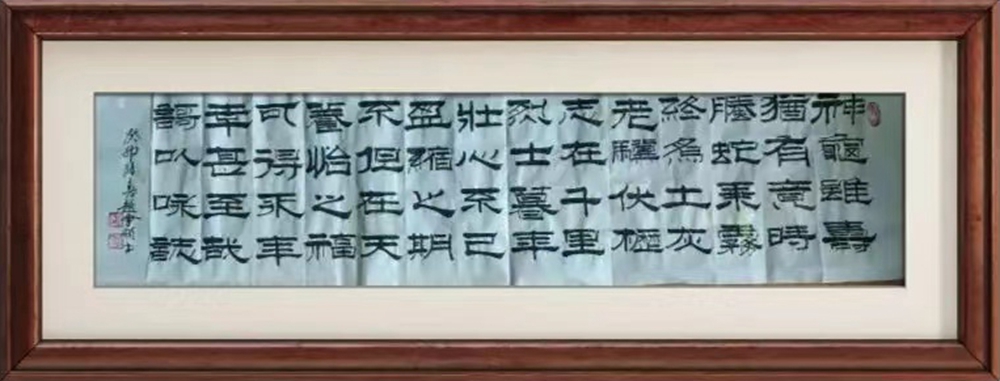 神龜雖壽
猶有竟時
騰蛇乘霧
終為土灰
老驥伏櫪
志在千里
烈士暮年
壯心不已
盈縮之期
不但在天
養怡之福
可得永年
幸甚至哉
謌以咏誌
癸卯